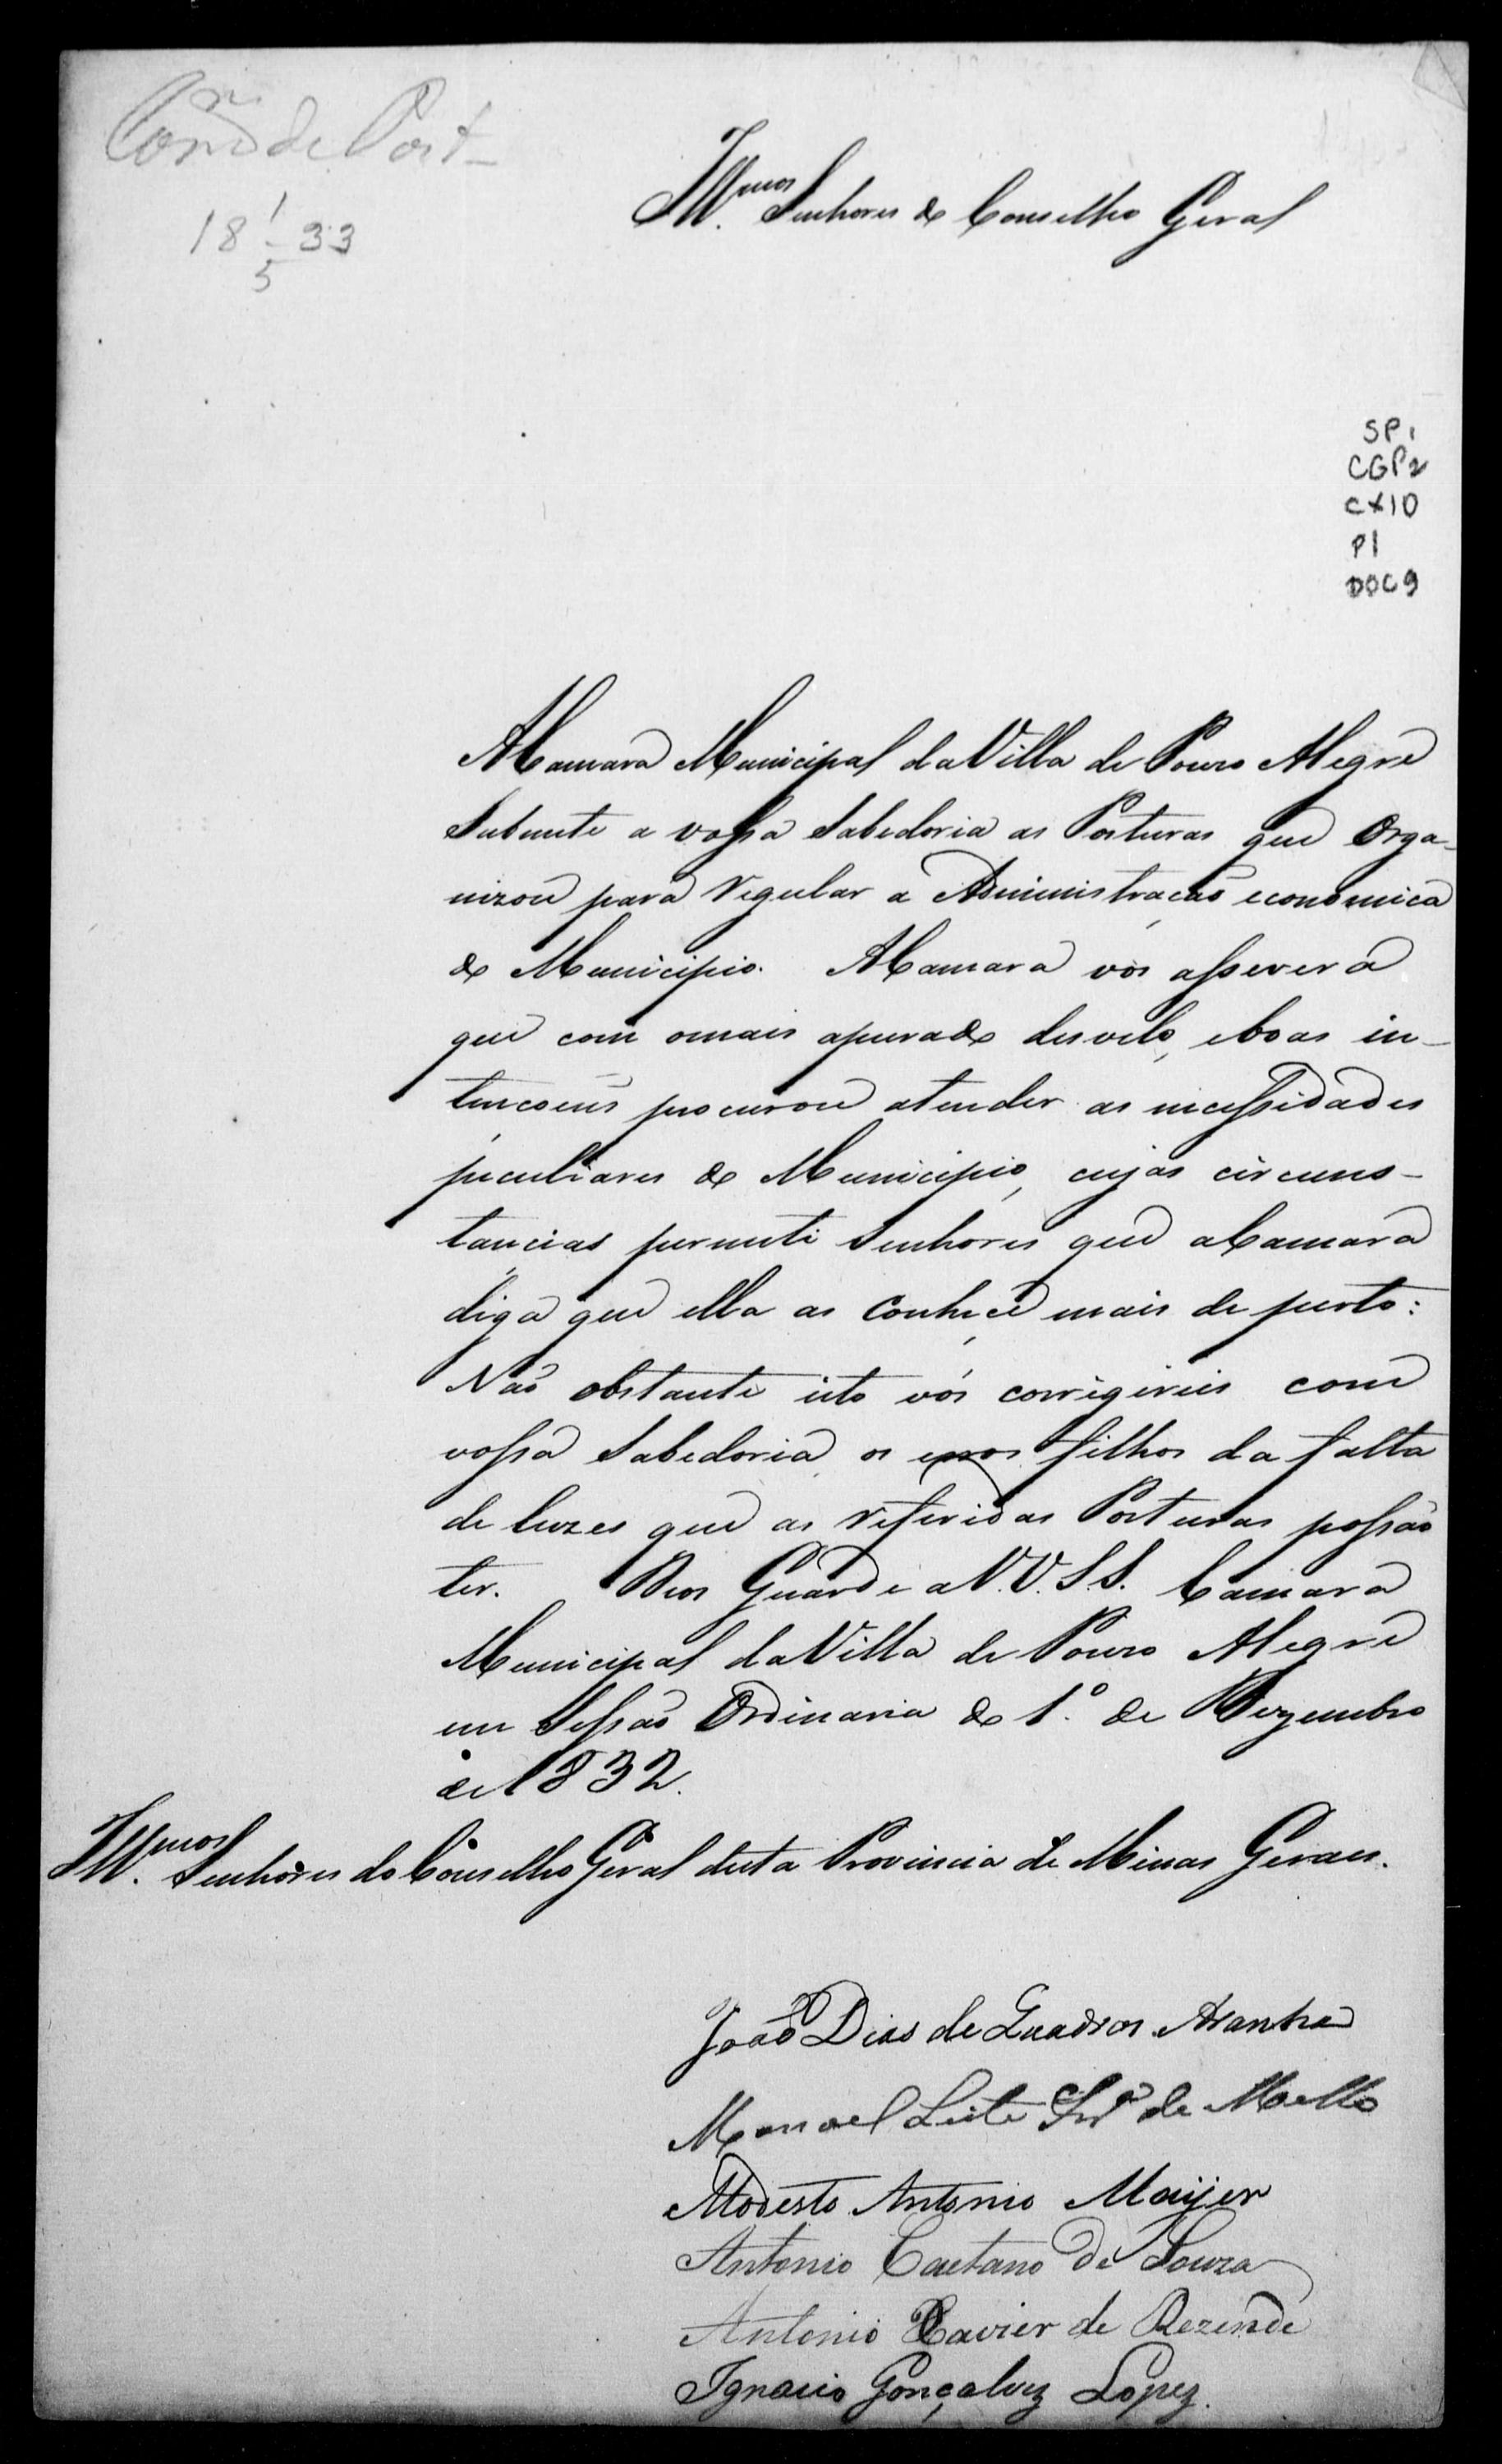 Com.am de Post.
18 1/5 33
Ill.mos Senhores do Conselho Geral
SP1
CGP2
CX10
P1
DOC9
A Camara Municipal da Villa de Pouzo Alegre
Submete a vossa Sabedoria as Posturas que Orga-
nizou para regular a Administração economica
do Municipio. A Camara vos assevera
que com o mais apurado desvelo, e boas in-
tençoens procurou atender as necessidades
peculiares do Municipio, cujas circuns-
tancias permiti Senhores que a Camara
diga que ella as conhece mais de perto:
Não obstante isto vós corrigireis com
vossa Sabedoria os erros filhos da falta
de luzes que as referidas Posturas possão
ter. Deos Guarde a V.V.S.S. Camara
Municipal da Villa de Pouzo Alegre
em Sessão Ordinaria do 1.º de Dezembro
de 1832.
Ill.mos Senhores do Conselho Geral desta Provincia de Minas Geraes.
João Dias de Quadros Aranha
Manoel Leite de Mello
Modesto Antonio Maijer
Antonio Caetano de Souza
Antonio Xavier de Rezende
Ignacio Gonçalvez Lopez.